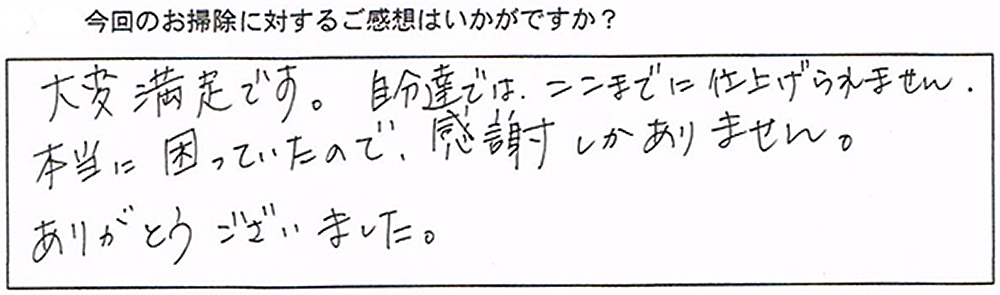 今回のお掃除に対するご感想はいかがですか？
大変満足です。自分達では、ここまでに仕上げられません.
本当に困っていたので、感謝しかありません。
ありがとうございました。